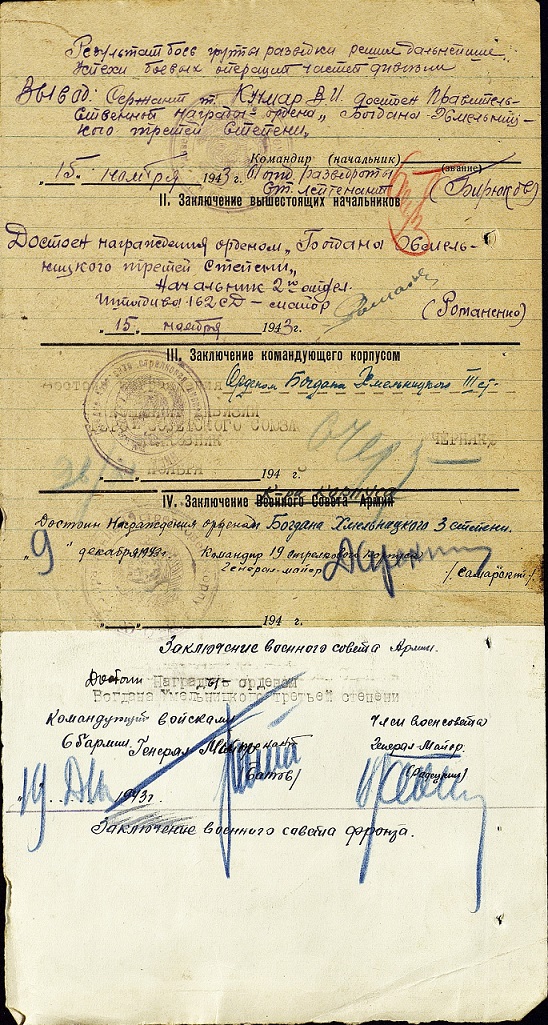 Результат боев группы разведки решил дальнейшие
успехи боевых операций частей дивизии
Вывод: Сержант т. В.И. достен Правитель-
ственной награды ордена „Богдана Хмельниц-
кого третей степени„
Командир (начальник)
„15„ ноября 1943 г. разведроты (звание)
ст. лейтенант (Бирюков)
II. Заключение вышестоящих начальников
Достоен награждения орденом „Богдана Хмель-
ницкого третей степени„
Начальник 2го отдел.
штадива 162 СД – майор
(Романенко)
„15„ ноября 1943 г.
III. Заключение командующего корпусом
Орденом Богдана Хмельницкого III ст-
Советского Союза
ЧЕРНЯК
194 г.
к-ра корпуса
IV. Заключение Военного Совета Армии
Достоин Награждения орденом Богдана Хмельницкого 3 степени.
„9„ декабря 1943г. Командир 19 стрелкового корпуса
Генерал-майор /Самарский/
194 г.
Заключение военного совета Армии.
Достоин Награды орденом
Богдана Хмельницкого третьей степени
Командующий войсками Член военсовета
65 армии Генерал Генерал-Майор
(Батов) (Радецкий)
19 1943г.
Заключение военного совета фронта.